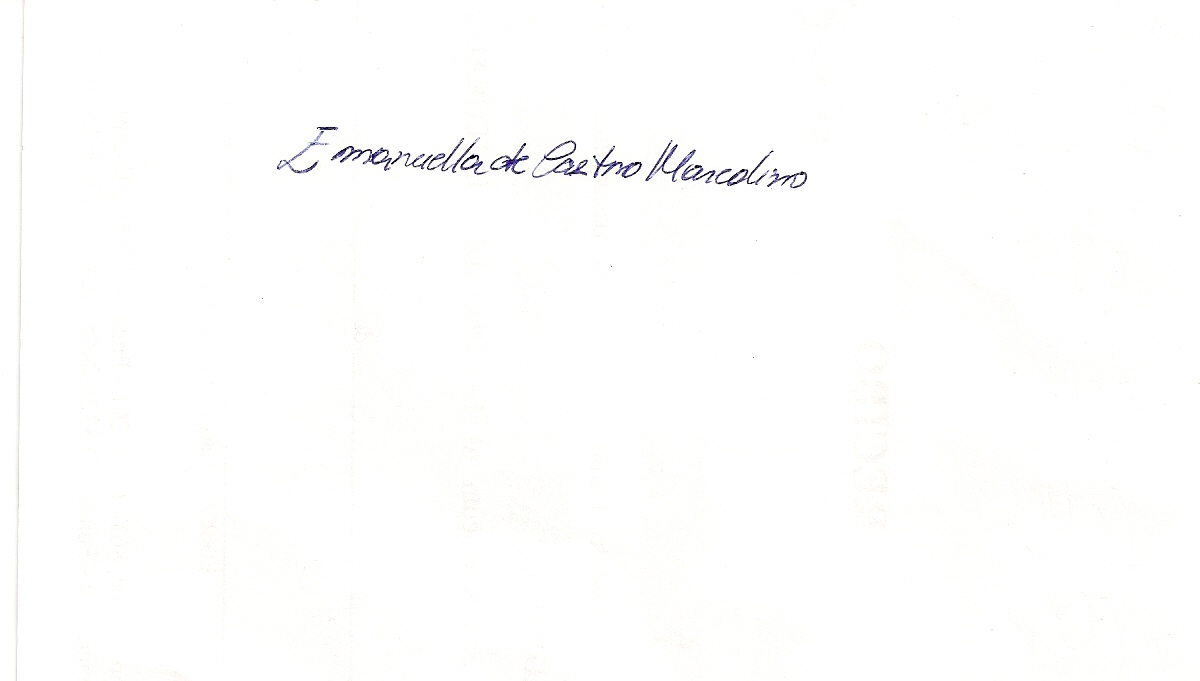 Emanuella de Castro Marcolino